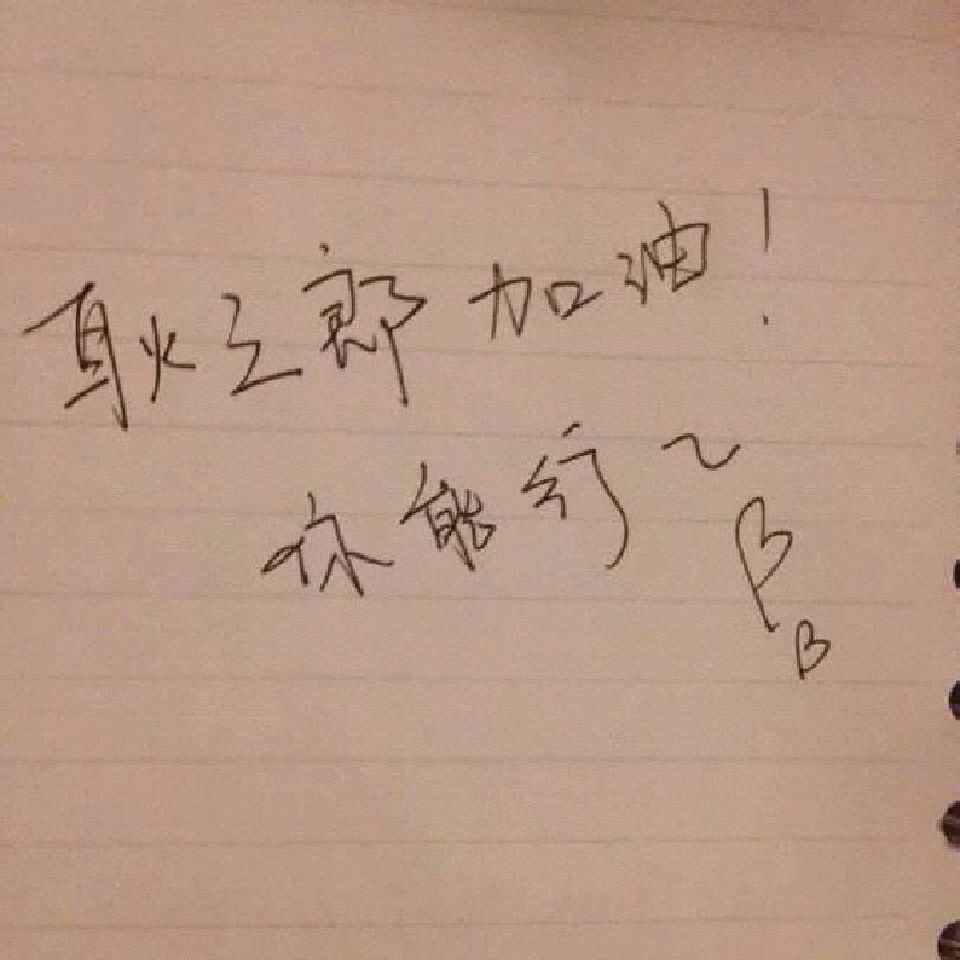 耿三郎 加油！
你能行～